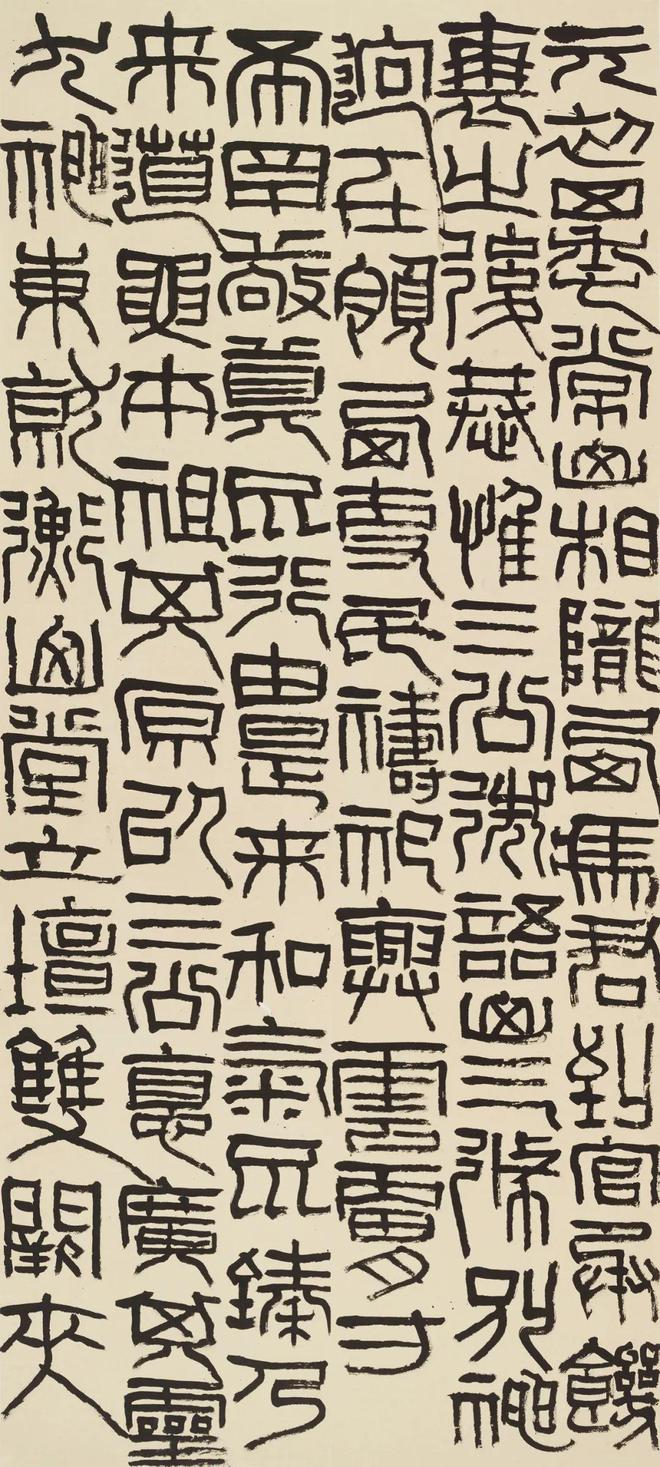 元初四年常山相隴西馮君到官承饑
衰之後恭惟三公御語山三條別神
迥在領西吏民禱祀興雲膚寸
而罔敬奠不行由是来和氣不臻乃
来道要本祖其原以三公德廣其靈
尤神東就衡山堂立壇雙闕夾